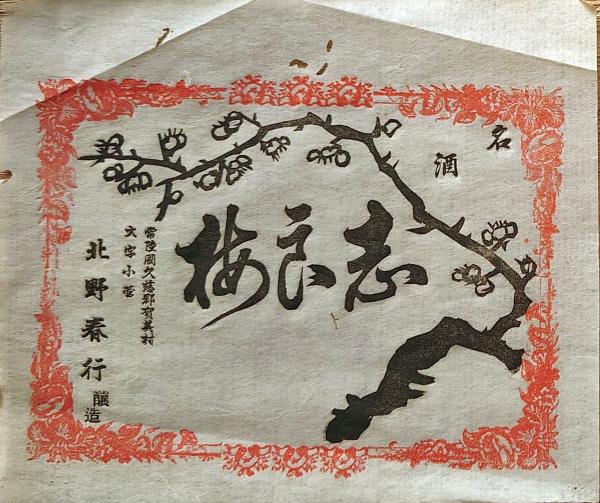 名酒
志良梅
常陸國久慈郡賀美村
大字小菅
北野春行
釀造